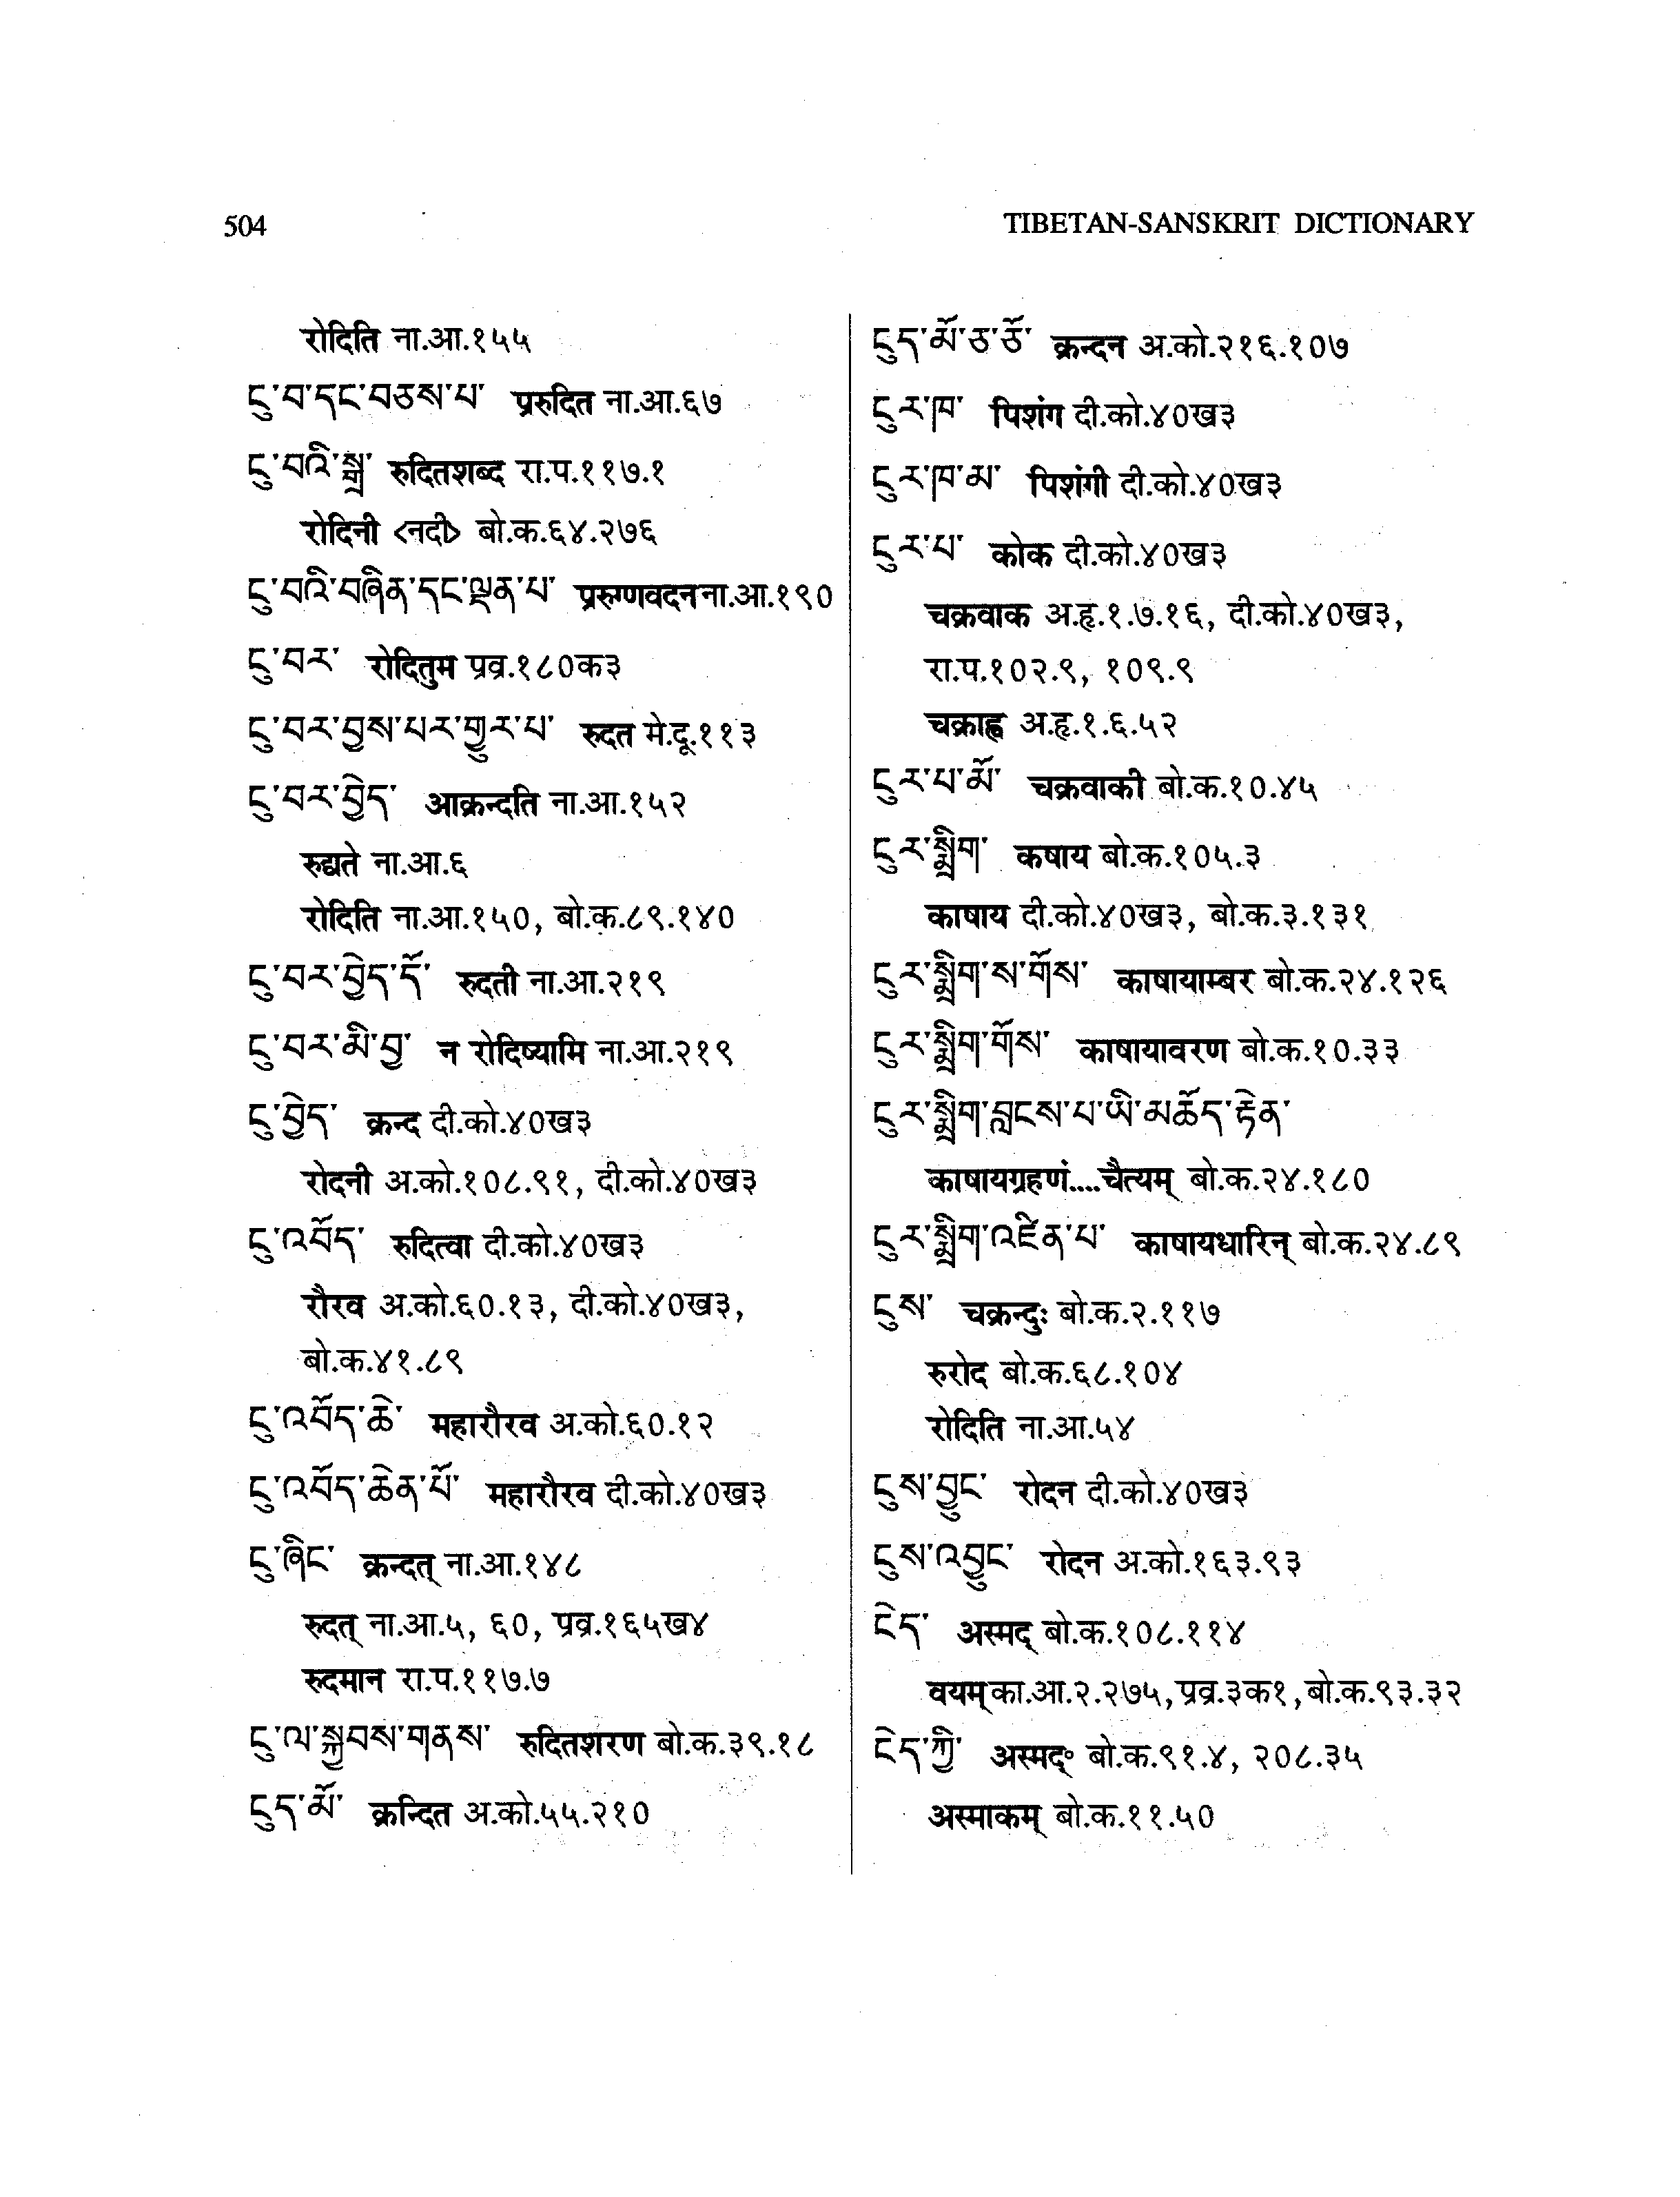 504
TIBETAN-SANSKRIT DICTIONARY
रोदिति ना.आ.१५५
ངུ་བ་དང་བཅས་པ་ प्ररुदित ना.आ.६७
ངུ་བའི་སྒྲ་ रुदितशब्द रा.प.११७.१
रोदिनी <नदी> बो.क.६४.२७६
ངུ་བའི་བཞིན་དང་ལྡན་པ་ प्ररुग्णवदन ना.आ.१९०
ངུ་བར་ रोदितुम प्रव्र.१८०क३
ངུ་བར་བྱས་པར་གྱུར་པ་ रुदत मे.दू.११३
ངུ་བར་བྱེད་ आक्रन्दति ना.आ.१५२
रुद्यते ना.आ.६
रोदिति ना.आ.१५०, बो.क.८९.१४०
ངུ་བར་བྱེད་དོ་ रुदती ना.आ.२१९
ངུ་བར་མི་བྱ་ न रोदिष्यामि ना.आ.२१९
ངུ་བྱེད་ क्रन्द दी.को.४०ख३
रोदनी अ.को.१०८.९१, दी.को.४०ख३
ངུ་འབོད་ रुदित्वा दी.को.४०ख३
रौरव अ.को.६०.१३, दी.को.४०ख३,
बो.क.४१.८९
ངུ་འབོད་ཆེ་ महारौरव अ.को.६०.१२
ངུ་འབོད་ཆེན་པོ་ महारौरव दी.को.४०ख३
ངུ་ཞིང་ क्रन्दत् ना.आ.१४८
रुदत् ना.आ.५, ६०, प्रव्र.१६५ख४
रुदमान रा.प.११७.७
ངུ་ལ་སྐྱབས་གནས་ रुदितशरण बो.क.३९.१८
ངུད་མོ་ क्रन्दित अ.को.५५.२१०
ངུད་མོ་ཅ་ཅོ་ क्रन्दन अ.को.२१६.१०७
ངུར་ཁ་ पिशंग दी.को.४०ख३
ངུར་ཁ་མ་ पिशंगी दी.को.४०ख३
ངུར་པ་ कोक दी.को.४०ख३
चक्रवाक अ.हृ.१.७.१६, दी.को.४०ख३,
रा.प.१०२.९, १०९.९
चक्राह्व अ.हृ.१.६.५२
ངུར་པ་མོ་ चक्रवाकी बो.क.१०.४५
ངུར་སྨྲིག་ कषाय बो.क.१०५.३
काषाय दी.को.४०ख३, बो.क.३.१३१
ངུར་སྨྲིག་ས་གོས་ काषायाम्बर बो.क.२४.१२६
ངུར་སྨྲིག་གོས་ काषायावरण बो.क.१०.३३
ངུར་སྨྲིག་བླངས་པ་ཡི་མཆོད་རྟེན་
काषायग्रहणं....चैत्यम् बो.क.२४.१८०
ངུར་སྨྲིག་འཛིན་པ་ काषायधारिन् बो.क.२४.८९
ངུས་ चक्रन्दुः बो.क.२.११७
रुरोद बो.क.६८.१०४
रोदिति ना.आ.५४
ངུས་བྱུང་ रोदन दी.को.४०ख३
ངུས་འབྱུང་ रोदन अ.को.१६३.९३
ངེད་ अस्मद् बो.क.१०८.११४
वयम् का.आ.२.२७५, प्रव्र.३क१, बो.क.९३.३२
ངེད་ཀྱི་ अस्मद्॰ बो.क.९१.४, २०८.३५
अस्माकम् बो.क.११.५०